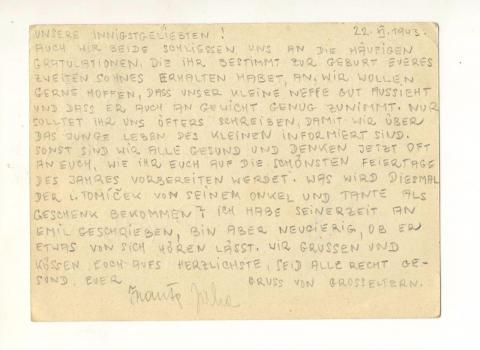 UNSERE INNIGSTGELIEBTEN! 22. XI. 1943.
AUCH WIR BEIDE SCHLIESSEN UNS AN DIE HÄUFIGEN
GRATULATIONEN, DIE IHR BESTIMMT ZUR GEBURT EUERES
ZWEITEN SOHNES ERHALTEN HABET, AN. WIR WOLLEN
GERNE HOFFEN, DASS UNSER KLEINE NEFFE GUT AUSSIEHT
UND DASS ER AUCH AN GEWICHT GENUG ZUNIMMT. NUR
SOLLTET IHR UNS ÖFTERS SCHREIBEN, DAMIT WIR ÜBER
DAS JUNGE LEBEN DES KLEINEN INFORMIERT SIND.
SONST SIND WIR ALLE GESUND UND DENKEN JETZT OFT
AN EUCH, WIE IHR EUCH AUF DIE SCHÖNSTEN FEIERTAGE
DES JAHRES VORBEREITEN WERDET. WAS WIRD DIESMAL
DER TOMÍČEK VON SEINEM ONKEL UND TANTE ALS
GESCHENK BEKOMMEN? ICH HABE SEINERZEIT AN
EMIL GESCHRIEBEN, BIN ABER NEUGIERIG, OB ER
ETWAS VON SICH HÖREN LÄSST. WIR GRÜSSEN UND
KÜSSEN EUCH AUFS HERZLICHSTE, SEID ALLE RECHT GE-
SUND. EUER GRUSS VON GROSSELTERN.